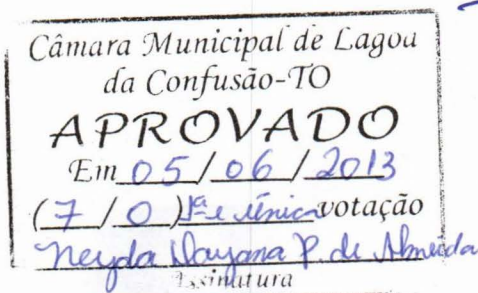 Câmara Municipal de Lagoa
da Confusão-TO
APROVADO
Em 05/06/2013
(7/0) 1ª e única votação
Neyda Dayana P. de Almeida
Assinatura